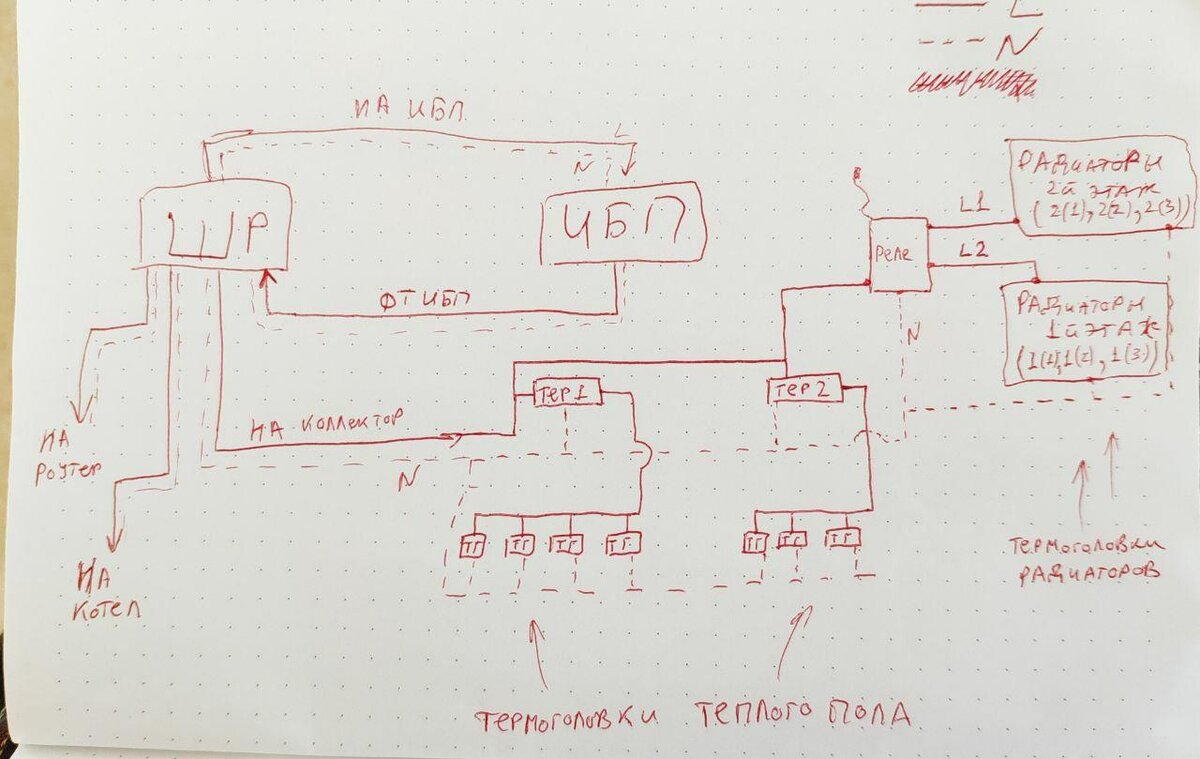 L
N
НА ИБП
L
N
ШР
ИБП
РАДИАТОРЫ
2й ЭТАЖ
(2(1), 2(2), 2(3))
L1
Реле
L2
ОТ ИБП
РАДИАТОРЫ
1й ЭТАЖ
(1(1), 1(2), 1(3))
N
ТЕР1
ТЕР2
НА КОЛЛЕКТОР
НА
РОУТЕР
N
ТГ ТГ ТГ ТГ
ТГ ТГ ТГ
НА
КОТЕЛ
ТЕРМОГОЛОВКИ
РАДИАТОРОВ
ТЕРМОГОЛОВКИ ТЕПЛОГО ПОЛА